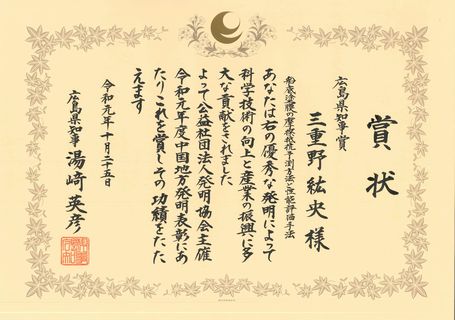 賞状
広島県知事賞
三重野紘央様
船底塗膜の摩擦抵抗予測方法と性能評価手法
あなたは右の優秀な発明によって
科学技術の向上と産業の振興に多
大な貢献をされました
よって公益社団法人発明協会主催
令和元年度中国地方発明表彰にあ
たりこれを賞しその功績をたた
えます
令和元年十月二十五日
広島県知事 湯﨑英彦